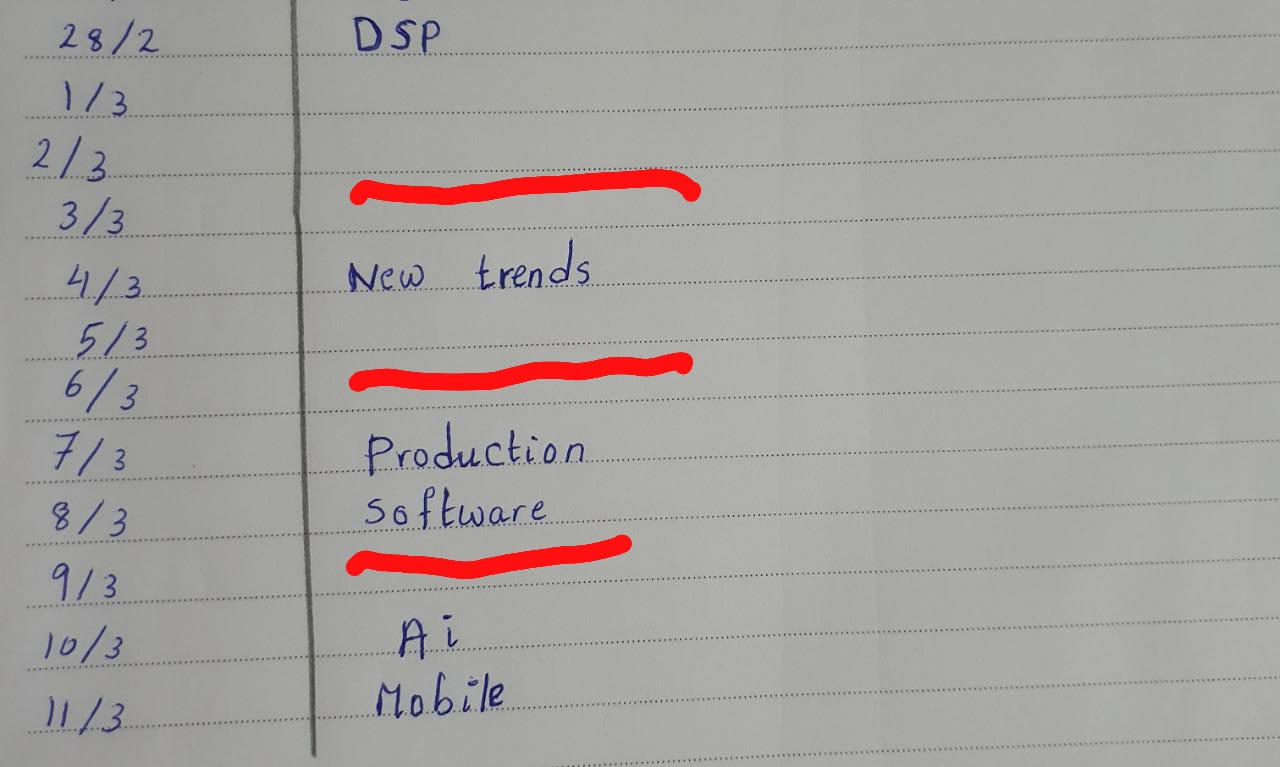 28/2 DSP
1/3
2/3
3/3
4/3 New trends
5/3
6/3
7/3 Production
8/3 Software
9/3
10/3 Ai
11/3 Mobile